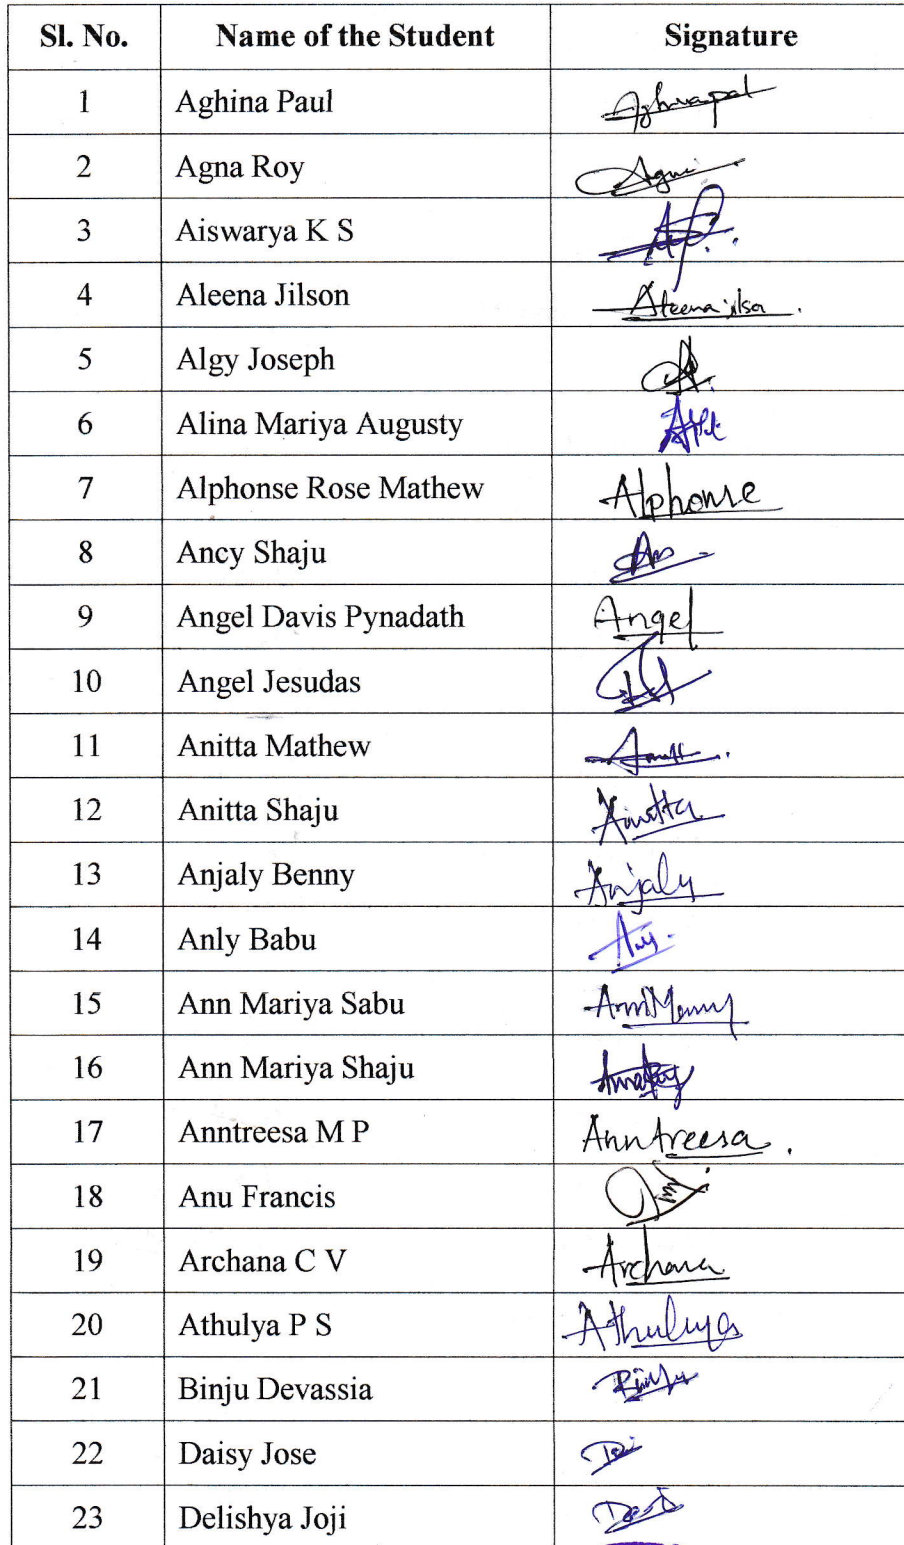 Sl. No. Name of the Student Signature
1 Aghina Paul
2 Agna Roy
3 Aiswarya K S
4 Aleena Jilson
5 Algy Joseph
6 Alina Mariya Augusty
7 Alphonse Rose Mathew Alphonse
8 Ancy Shaju
9 Angel Davis Pynadath Angel
10 Angel Jesudas
11 Anitta Mathew
12 Anitta Shaju Anitta
13 Anjaly Benny Anjaly
14 Anly Babu
15 Ann Mariya Sabu
16 Ann Mariya Shaju
17 Anntreesa M P Anntreesa.
18 Anu Francis
19 Archana C V Archana
20 Athulya P S Athulya
21 Binju Devassia
22 Daisy Jose
23 Delishya Joji